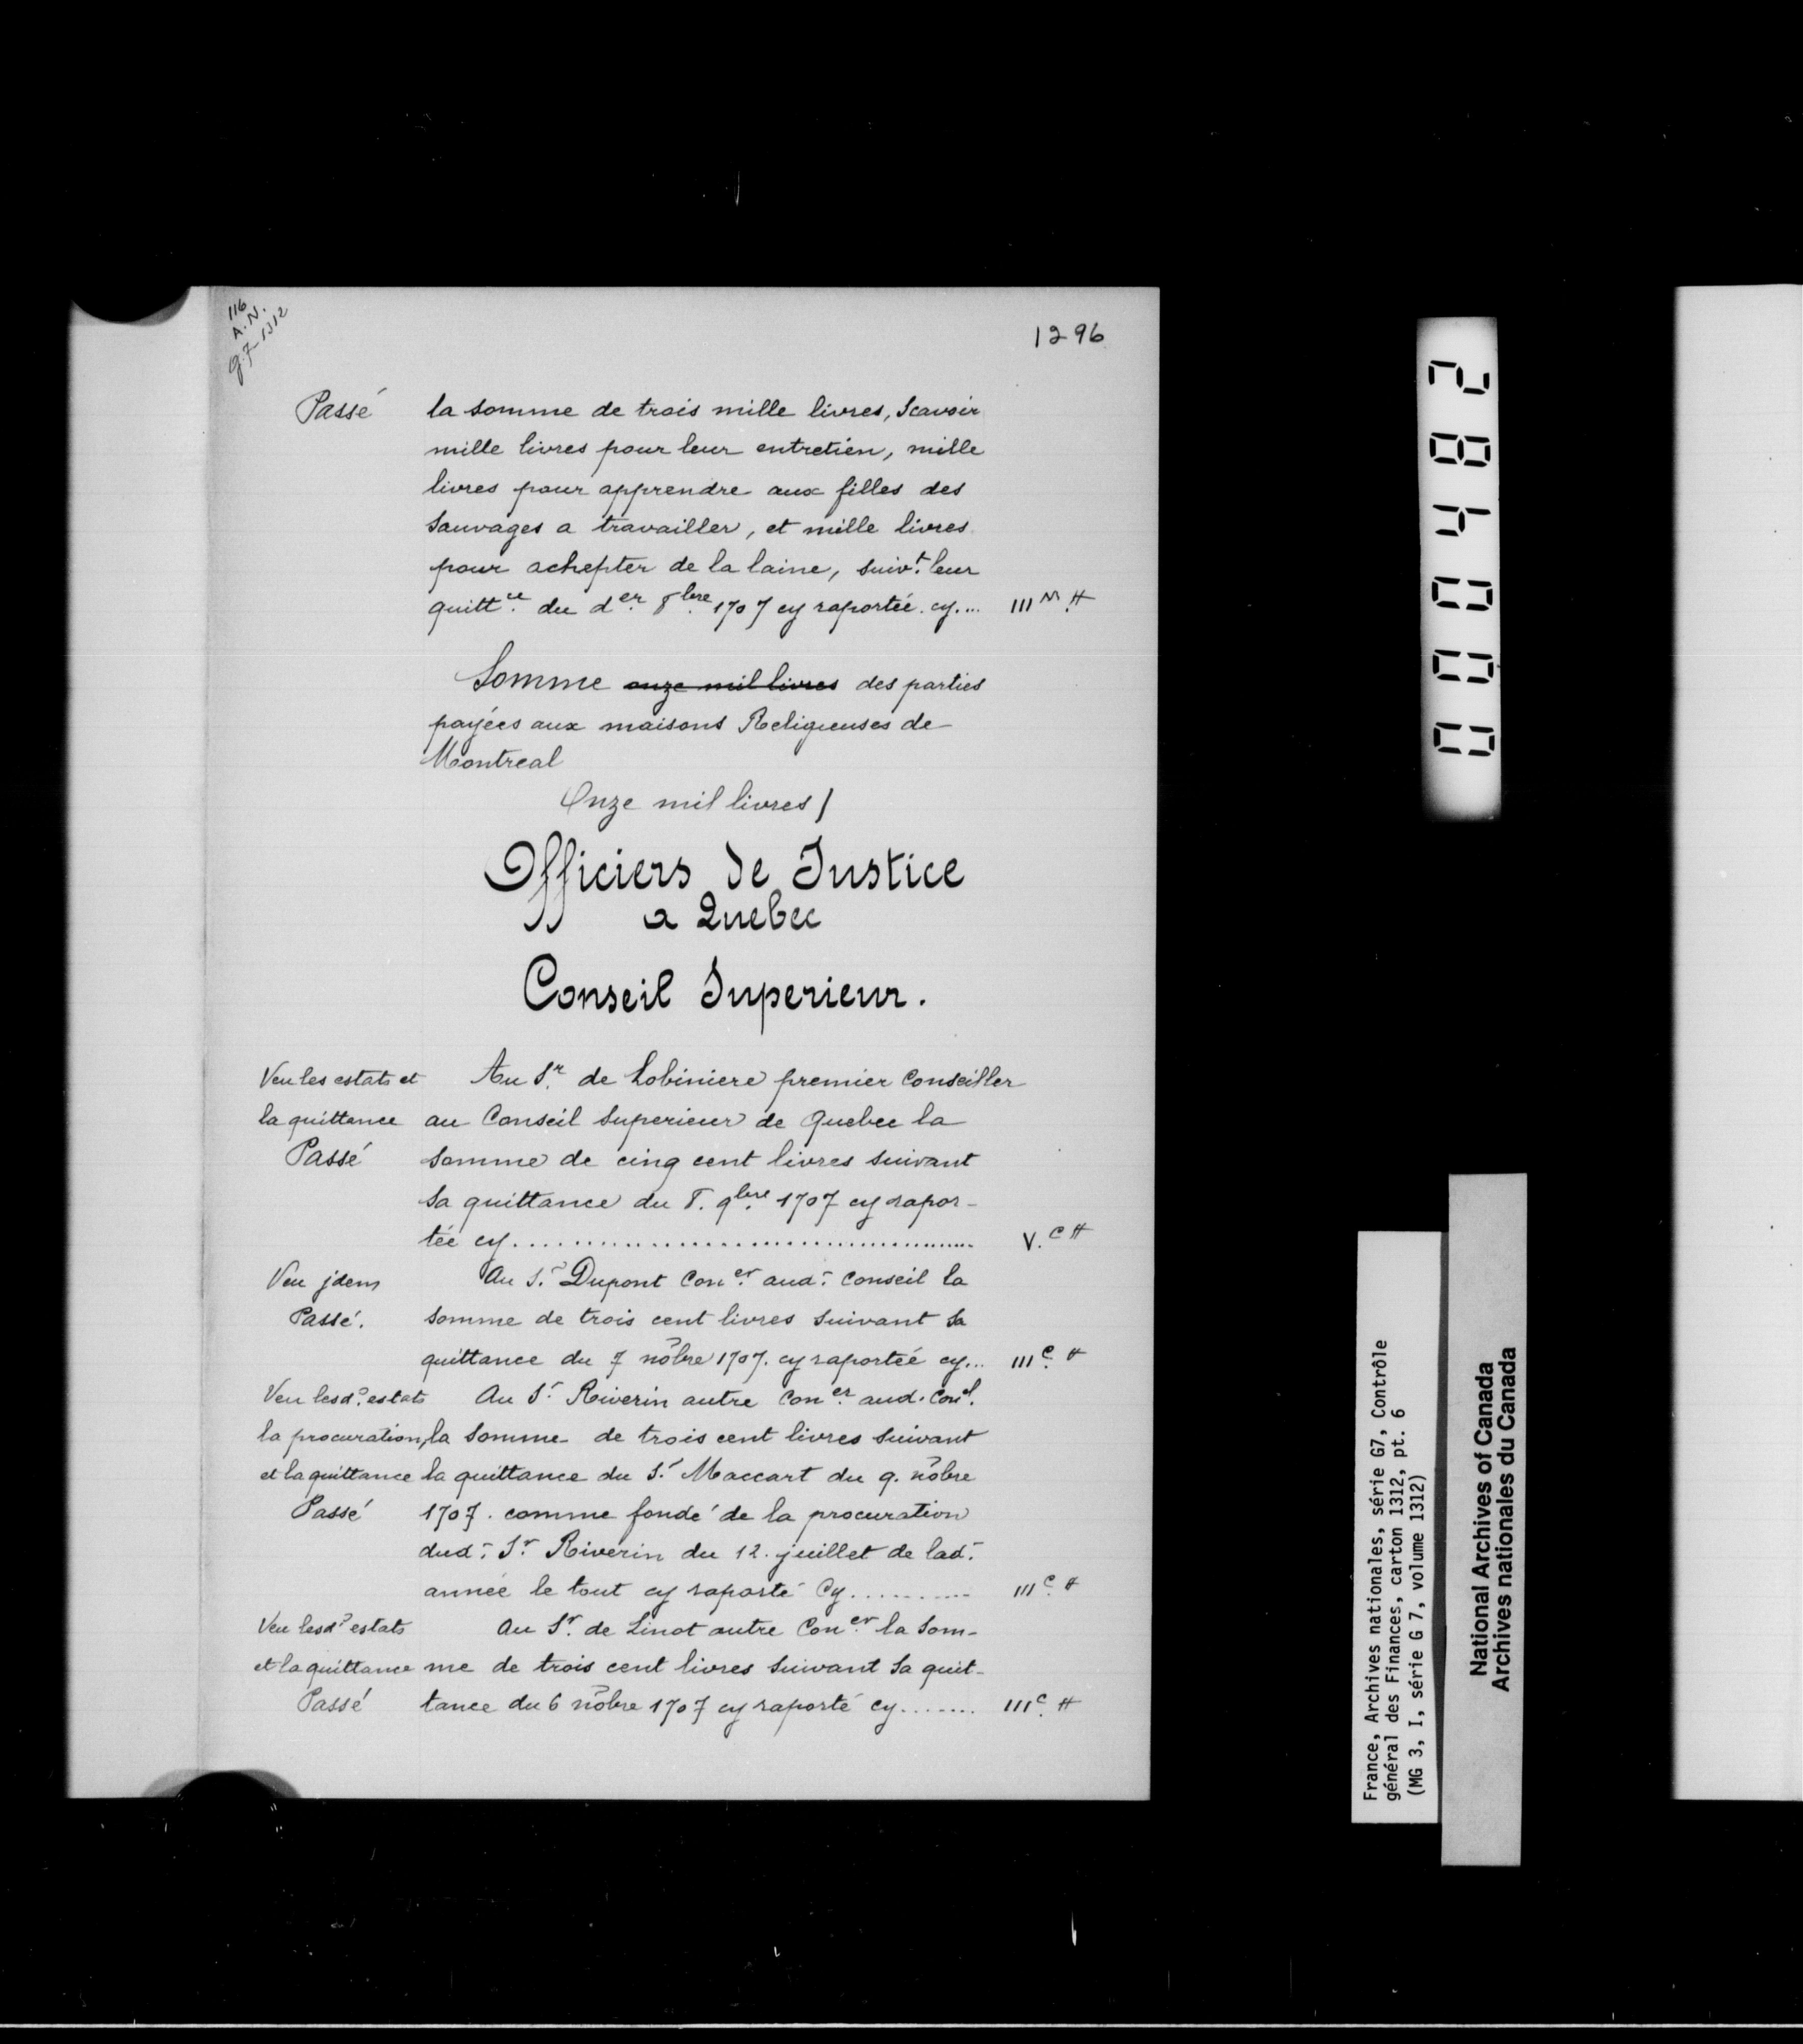 116
A.N.
G.7-1312
1296
Passé la somme de trois mille livres, Scavoir
mille livres pour leur entretien, mille
livres pour apprendre aux filles des
Sauvages a travailler, et mille livres
pour achepter de la laine, suivt. leur
quittce. du der. 8bre. 1707 cy raportée. cy.... IIIM.#
Somme onze mil livres des parties
payées aux maisons Religieuses de
Montreal
Onze mil livres /
Officiers de Justice
a Quebec
Conseil Superieur.
Veu les estats et Au Sr. de Lobiniere premier Conseiller
la quittance au Conseil Superieur de Quebec la
Passé somme de cinq cent livres suivant
Sa quittance du 8. 9bre. 1707 cy rapor-
tée cy........ V.C#
Veu jdem Au Sr. Dupont Coner. aud. Conseil la
Passé. somme de trois cent livres suivant sa
quittance du 7 nõbre 1707. cy raportée cy... IIIC.#
Veu lesd. estats Au Sr. Riverin autre Coner. aud. Conel.
la procuration, la somme de trois cent livres suivant
et la quittance la quittance du Sr. Maccart du 9. nõbre
Passé 1707. comme fondé de la procuration
dud. Sr. Riverin du 12. juillet de lad.
année le tout cy raporté Cy.......... IIIC.#
Veu lesd. estats Au Sr. de Linot autre Coner. la Som-
et la quittance me de trois cent livres suivant Sa quit-
Passé tance du 6 nõbre 1707 cy raporté cy....... IIIC.#
000482
France, Archives nationales, série G7, Contrôle
général des Finances, carton 1312, pt. 6
(MG 3, I, série G 7, volume 1312)
National Archives of Canada
Archives nationales du Canada